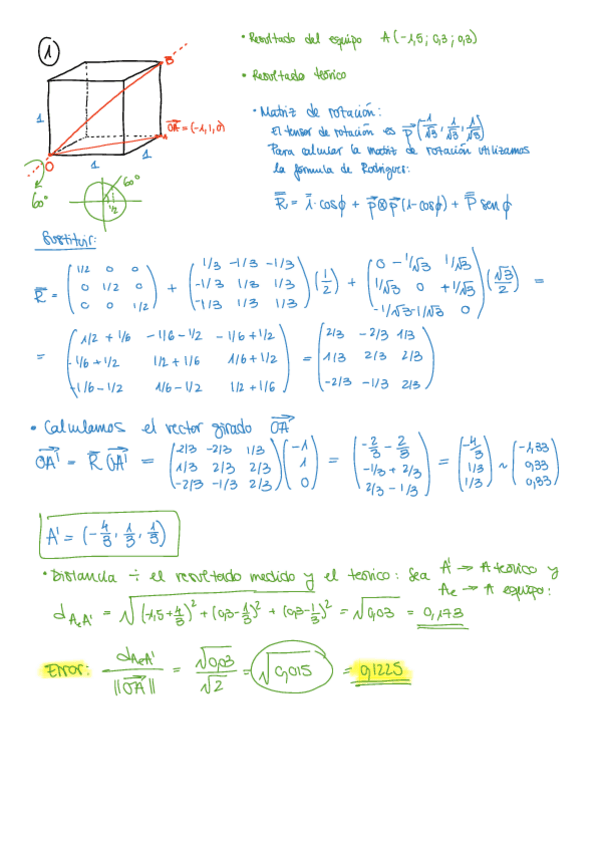 1
• Resultado del equipo A(-1,5; 0,3; 0,3)
• Resultado teórico
B
OA = (-1,1,0)
A
O
1
1
1
60°
60°
1/2
• Matriz de rotación:
El tensor de rotación es p(1/√3, 1/√3, 1/√3)
Para calcular la matriz de rotación utilizamos
la fórmula de Rodrigues:
R = I·cosϕ + p⊗p(1-cosϕ) + P senϕ
Sustituir:
R = (1/2 0 0 ; 0 1/2 0 ; 0 0 1/2) + (1/3 -1/3 -1/3 ; -1/3 1/3 1/3 ; -1/3 1/3 1/3)(1/2) + (0 -1/√3 1/√3 ; 1/√3 0 +1/√3 ; -1/√3 -1/√3 0)(√3/2) =
= (1/2+1/6 -1/6-1/2 -1/6+1/2 ; -1/6+1/2 1/2+1/6 1/6+1/2 ; -1/6-1/2 1/6-1/2 1/2+1/6) = (2/3 -2/3 1/3 ; 1/3 2/3 2/3 ; -2/3 -1/3 2/3)
• Calculamos el vector girado OA'
OA' = R OA' = (2/3 -2/3 1/3 ; 1/3 2/3 2/3 ; -2/3 -1/3 2/3)(-1 ; 1 ; 0) = (-2/3 - 2/3 ; -1/3 + 2/3 ; 2/3 - 1/3) = (-4/3 ; 1/3 ; 1/3) ~ (-1,33 ; 0,33 ; 0,33)
A' = (-4/3, 1/3, 1/3)
• Distancia ÷ el resultado medido y el teórico: Sea A' → A teórico y
Ae → A equipo:
dAeA' = √((-1,5+4/3)² + (0,3-1/3)² + (0,3-1/3)²) = √0,03 = 0,173
Error: dAeA' / ||OA|| = √0,03 / √2 = √0,015 = 0,1225